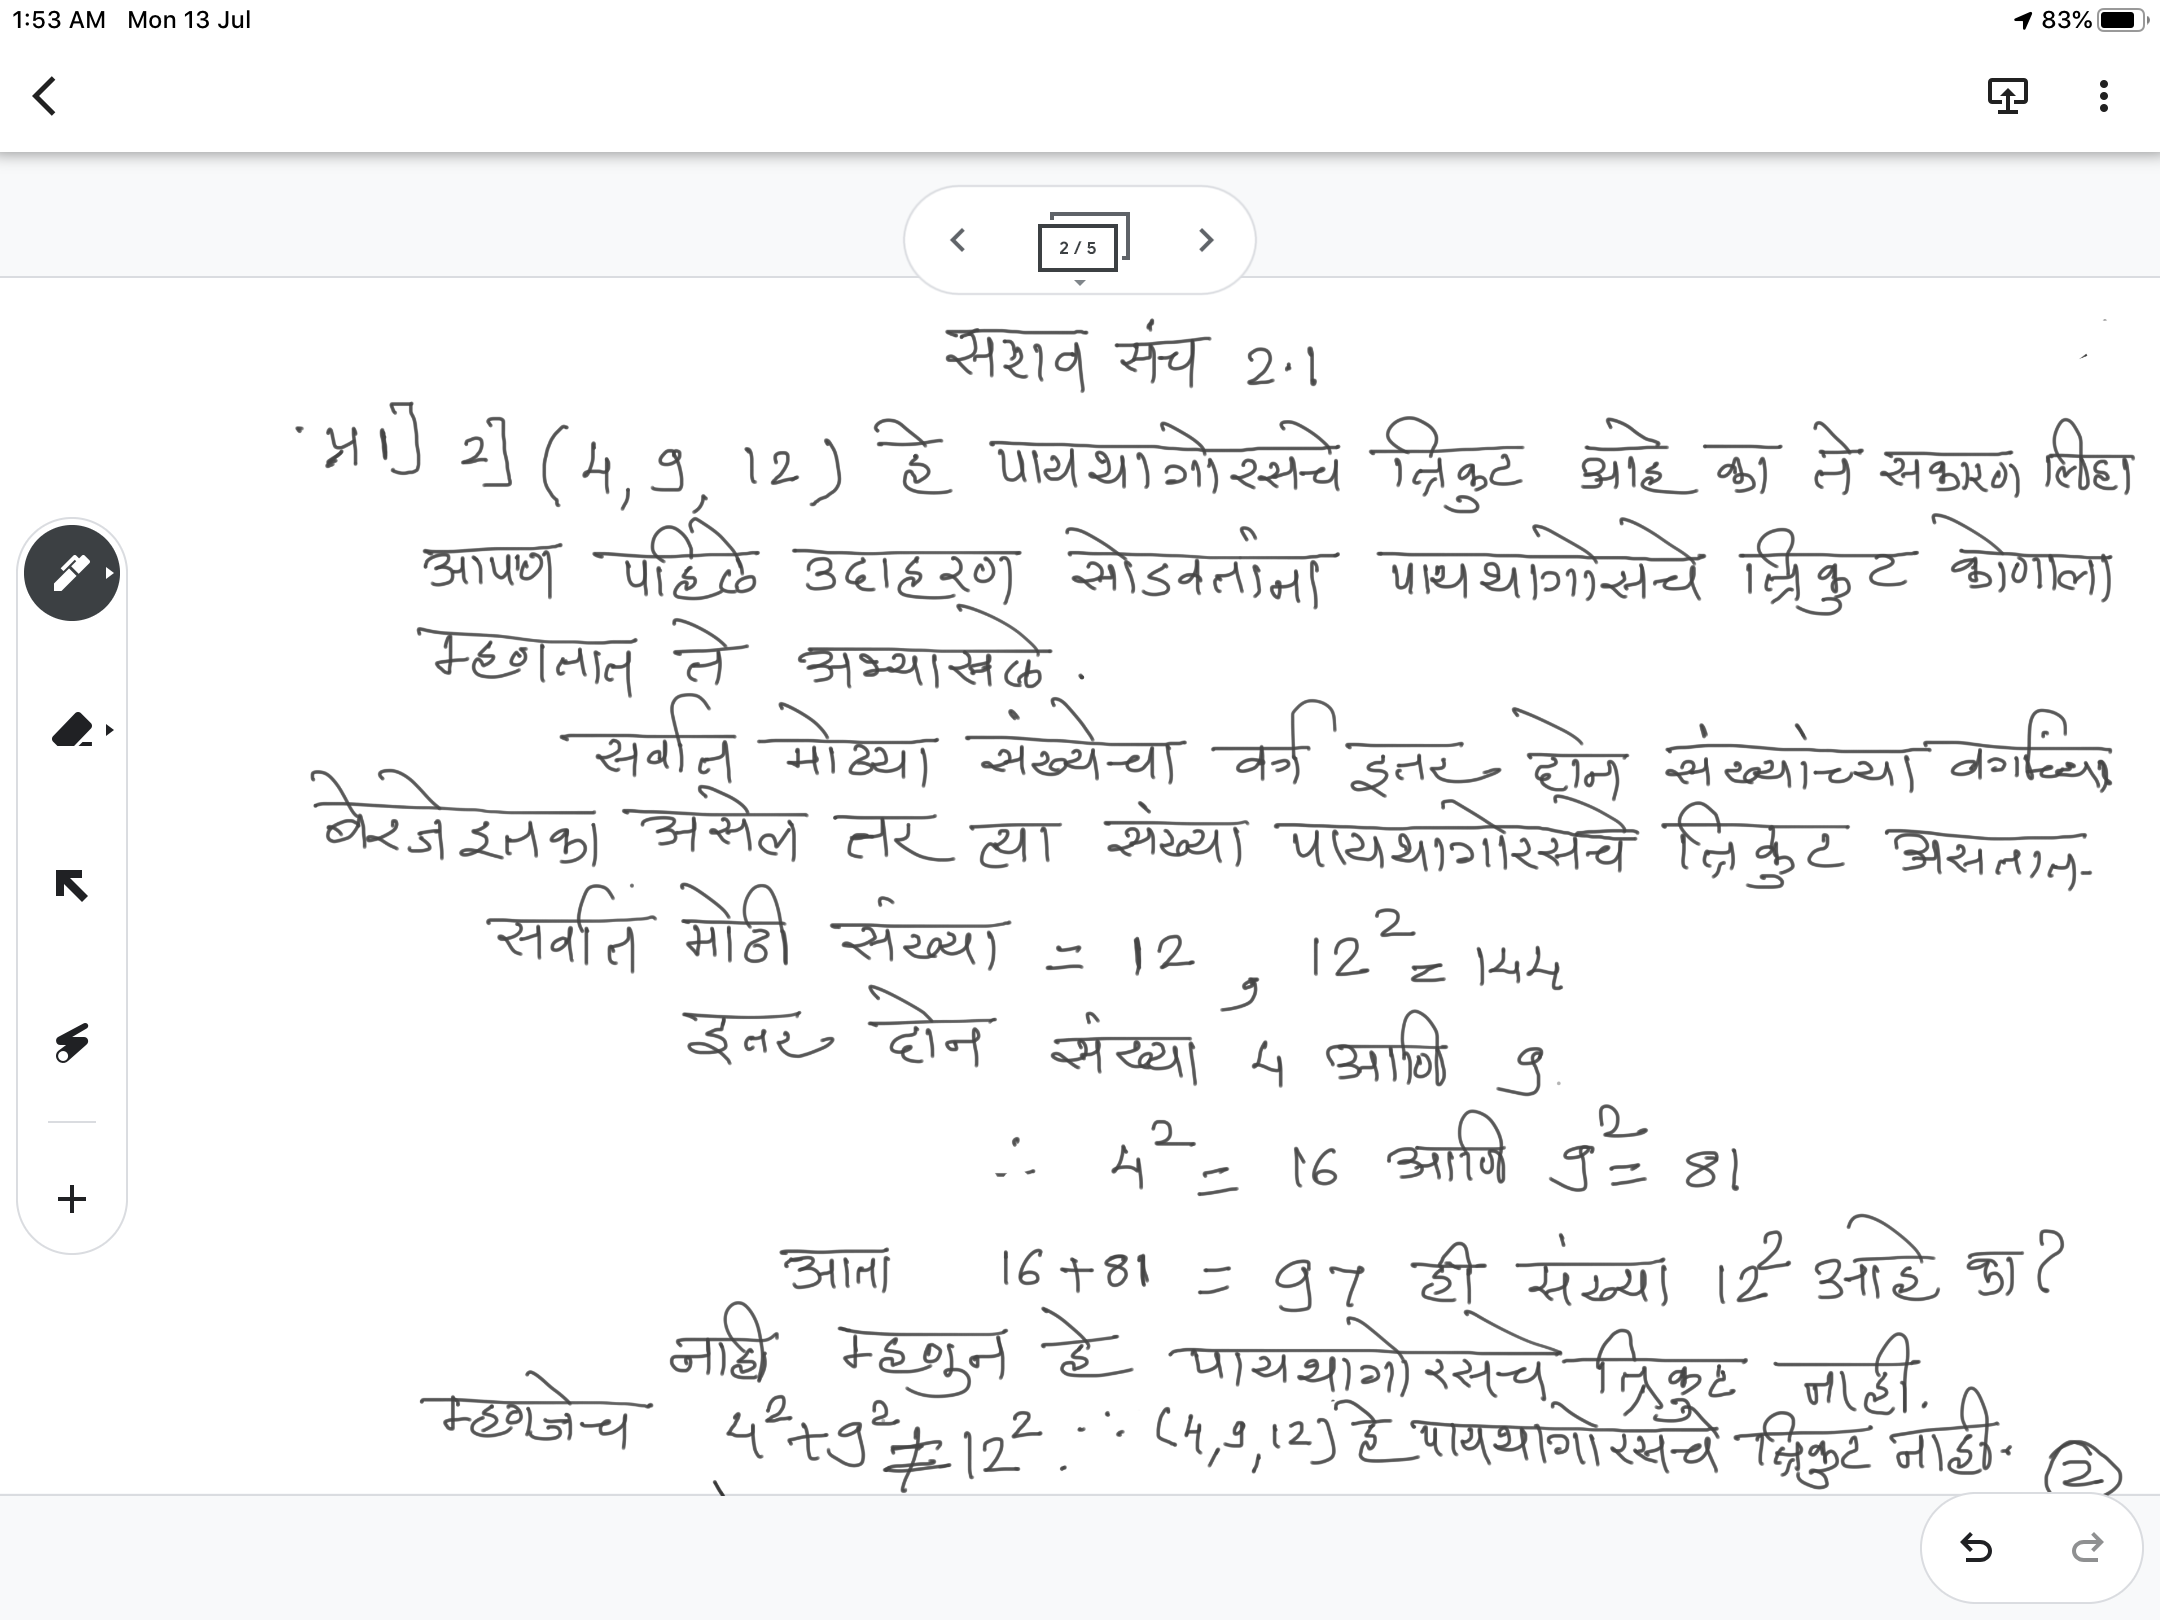 1:53 AM Mon 13 Jul
83%
2 / 5
सराव संच 2.1
प्र 1] 2] (4, 9, 12) हे पायथागोरसचे त्रिकुट आहे का ते सकारण लिहा
आपण पहिले उदाहरण सोडवतांना पायथागोरसचे त्रिकुट कोणाला
म्हणतात ते अभ्यासले.
सर्वात मोठ्या संख्येचा वर्ग इतर दोन संख्यांच्या वर्गांच्या
बेरजे इतका असेल तर त्या संख्या पायथागोरसचे त्रिकुट असतात.
सर्वात मोठी संख्या = 12 , 12² = 144
इतर दोन संख्या 4 आणि 9.
∴ 4² = 16 आणि 9² = 81
आता 16 + 81 = 97 ही संख्या 12² आहे का?
नाही म्हणुन हे पायथागोरसचे त्रिकुट नाही.
म्हणजेच 4² + 9² ≠ 12² . ∴ (4, 9, 12) हे पायथागोरसचे त्रिकुट नाही.
2